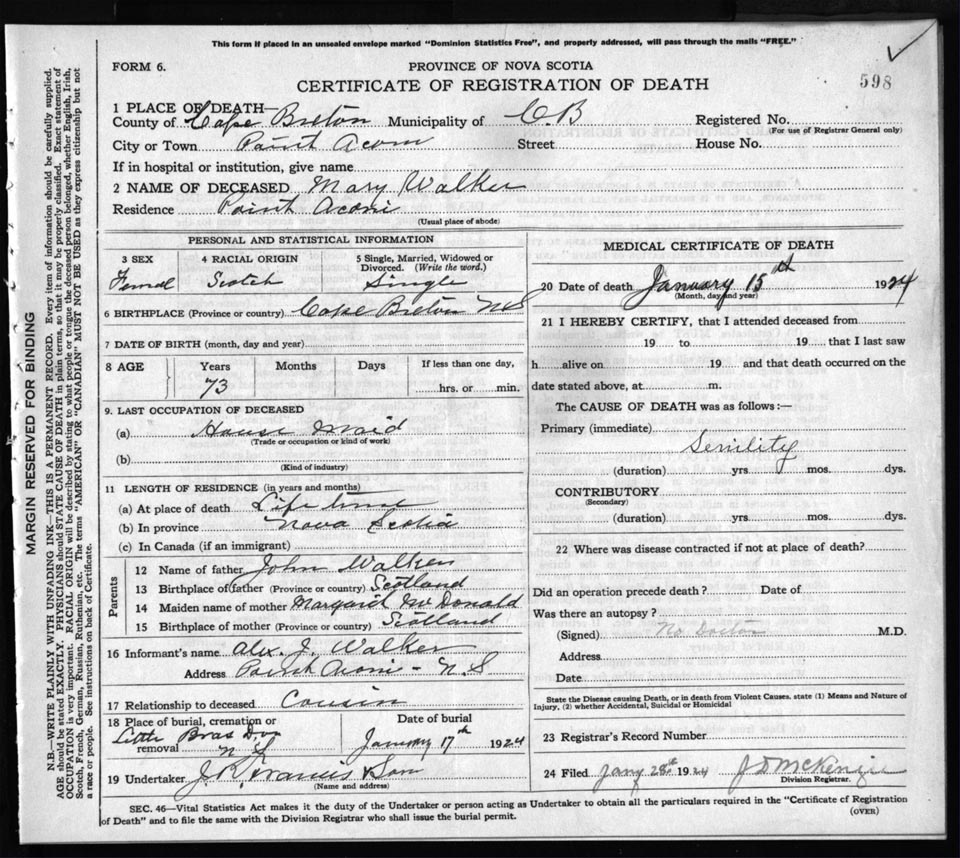 This form if placed in an unsealed envelope marked "Dominion Statistics Free", and properly addressed, will pass through the mails "FREE."
FORM 6.
PROVINCE OF NOVA SCOTIA
598
CERTIFICATE OF REGISTRATION OF DEATH
1 PLACE OF DEATH—
County of Cape Breton Municipality of C B Registered No.
(For use of Registrar General only)
City or Town Point Aconi Street House No.
If in hospital or institution, give name
2 NAME OF DECEASED Mary Walker
Residence Point Aconi
(Usual place of abode)
PERSONAL AND STATISTICAL INFORMATION
3 SEX 4 RACIAL ORIGIN 5 Single, Married, Widowed or
Divorced. (Write the word.)
Femal Scotch Single
6 BIRTHPLACE (Province or country) Cape Breton NS
7 DATE OF BIRTH (month, day and year)
8 AGE Years Months Days If less than one day,
73 hrs. or min.
9. LAST OCCUPATION OF DECEASED
(a) House Maid
(Trade or occupation or kind of work)
(b)
(Kind of industry)
11 LENGTH OF RESIDENCE (in years and months)
(a) At place of death Life time
(b) In province Nova Scotia
(c) In Canada (if an immigrant)
Parents
12 Name of father John Walker
13 Birthplace of father (Province or country) Scotland
14 Maiden name of mother Margaret McDonald
15 Birthplace of mother (Province or country) Scotland
16 Informant's name Alex. J. Walker
Address Point Aconi - N.S
17 Relationship to deceased Cousin
18 Place of burial, cremation or Date of burial
Little Bras Dor
removal N S January 17th 1924
19 Undertaker J. R. Francis & Son
(Name and address)
MEDICAL CERTIFICATE OF DEATH
20 Date of death January 15th 1924
(Month, day and year)
21 I HEREBY CERTIFY, that I attended deceased from
19 to 19 that I last saw
h alive on 19 and that death occurred on the
date stated above, at m.
The CAUSE OF DEATH was as follows:—
Primary (immediate)
Senility
(duration) yrs. mos. dys.
CONTRIBUTORY
(Secondary)
(duration) yrs. mos. dys.
22 Where was disease contracted if not at place of death?
Did an operation precede death? Date of
Was there an autopsy?
(Signed) No Doctor M.D.
Address
Date
State the Disease causing Death, or in death from Violent Causes, state (1) Means and Nature of
Injury, (2) whether Accidental, Suicidal or Homicidal
23 Registrar's Record Number
24 Filed Jany 28th 1924 J D McKenzie
Division Registrar.
SEC. 46—Vital Statistics Act makes it the duty of the Undertaker or person acting as Undertaker to obtain all the particulars required in the "Certificate of Registration
of Death" and to file the same with the Division Registrar who shall issue the burial permit.
(OVER)
MARGIN RESERVED FOR BINDING
N.B.—WRITE PLAINLY WITH UNFADING INK—THIS IS A PERMANENT RECORD. Every item of information should be carefully supplied.
AGE should be stated EXACTLY. PHYSICIANS should STATE CAUSE OF DEATH in plain terms, so that it may be properly classified. Exact statement of
OCCUPATION is very important. RACIAL ORIGIN will be described by stating to what people or tongue the deceased person belonged, whether English, Irish,
Scotch, French, German, Russian, Ruthenian, etc. The terms "AMERICAN" or "CANADIAN" MUST NOT BE USED as they express citizenship but not
a race or people. See instructions on back of Certificate.